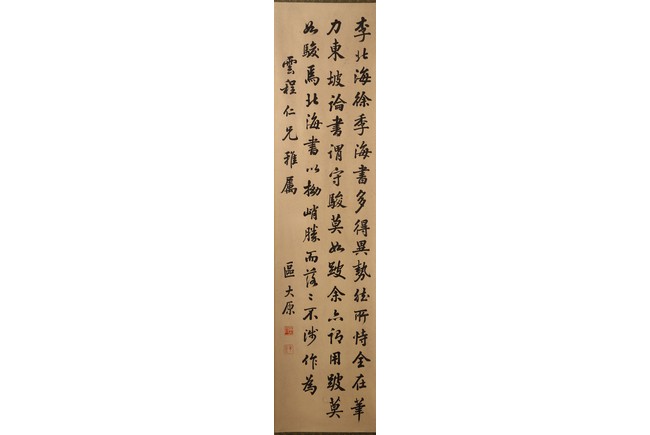 李北海徐季海書多得異勢然所恃全在筆
力東坡論書謂守駿莫如跛余亦謂用跛莫
如駿焉北海書以拗峭勝而落落不涉作為
雲程仁兄雅屬
區大原